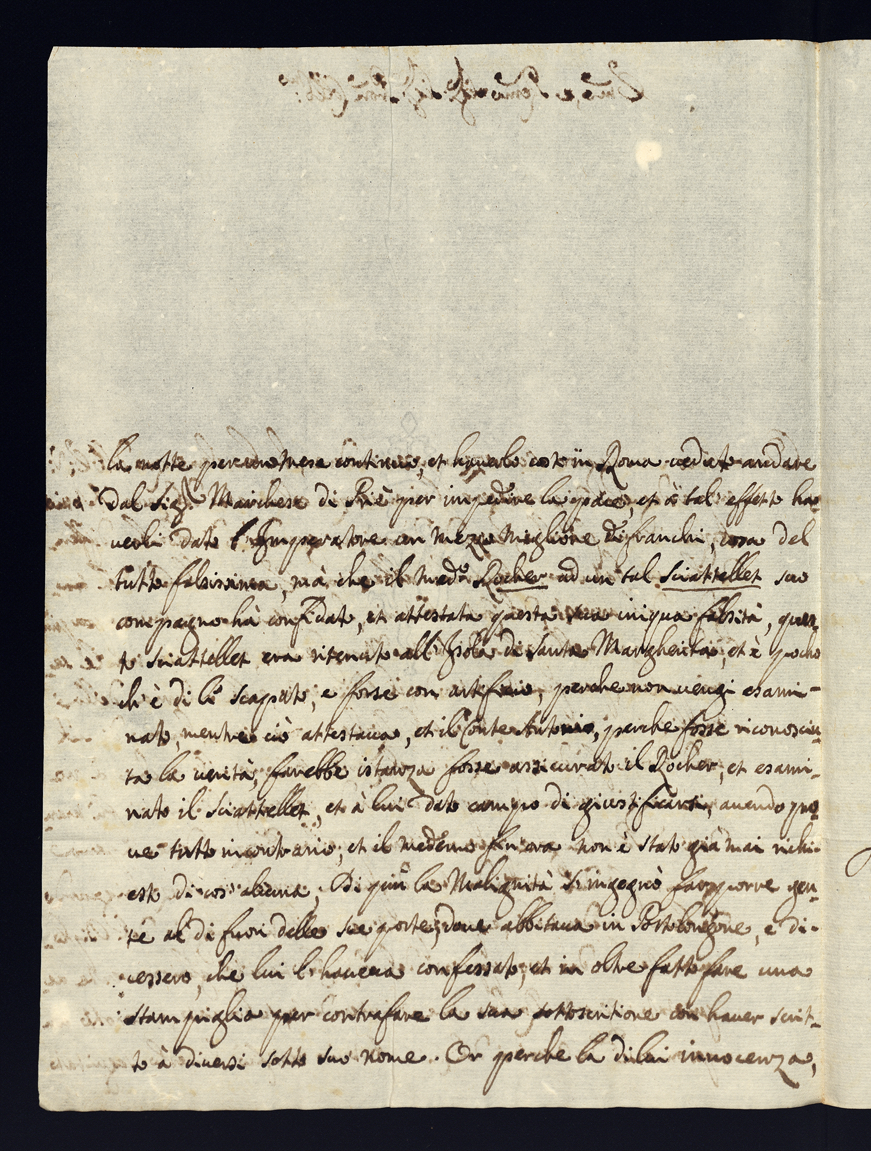 la notte per un mese continuo, et haverlo così in Roma veduto andare
dal Sig.r Marchese di Priè per impedire la pace, et à tal' effetto ha-
verli dato l'Imperatore un mezzo miglione di franchi, cosa del
tutto falsissima, mà che il med.o Rocher ad un tal Sciattellet suo
compagno hà confidato, et attestata questa iniqua falsità, ques-
to Sciattellet era ritenuto all' Isola di Santa Margherita, et è pocho
ch'è di lì scapato, e forsi con artefitio, perche non vengi esami-
nato, mentre ciò attestava, et il Conte Antonio, perche fosse riconosciu-
ta la verità, farebbe istanza fosse assicurato il Rocher, et esami-
nato il Sciattellet, et à lui dato campo di giustificarsi, avendo pro-
ve tutto in contrario, et il medemo fin ora non è stato già mai richi-
esto di cos' alcuna, Di più la Malignità s'ingegnò far porre gen-
te al di fuori delle sue porte, dove abbitava in Portolongone, e di-
cessero, che lui l'haveva confessato, et in oltre fatto fare una
stampiglia per contrafare la sua sottoscritione con haver scrit-
to à diversi sotto suo nome. Or perche la di lui innocenza,